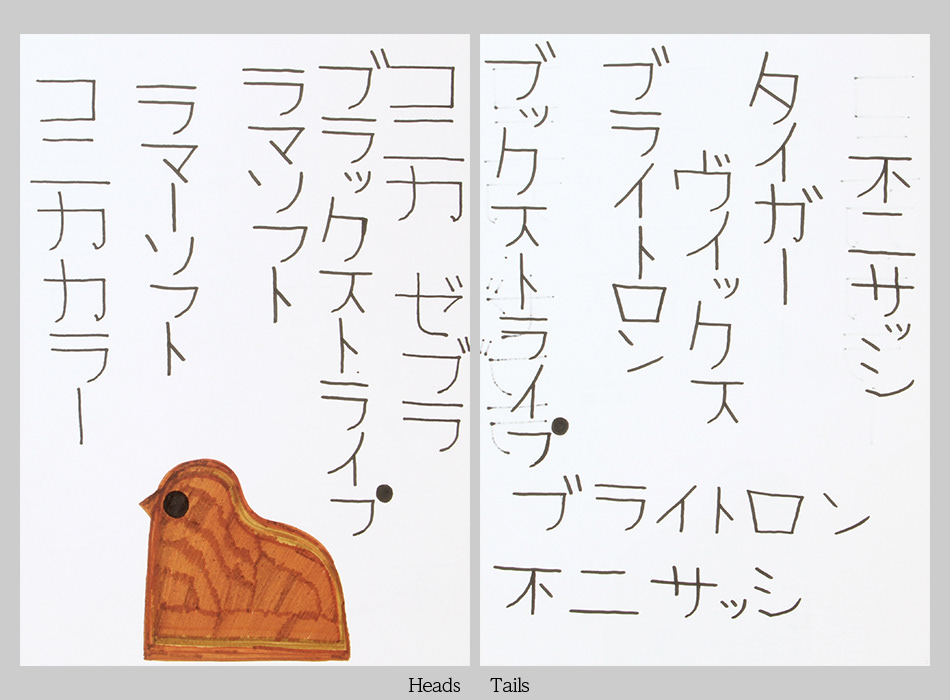 コニカ ゼブラ
ブラックストライプ
ラマソフト
ラマーソフト
コニカカラー
不二サッシ
タイガー
ヴィックス
ブライトロン
ブックストライプ
ブライトロン
不二サッシ
Heads
Tails